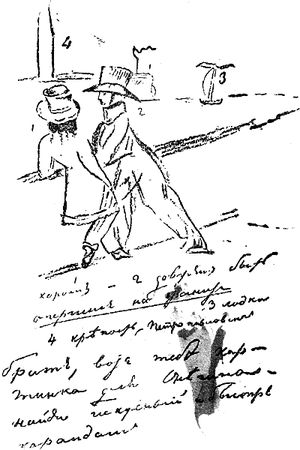 4
3
2
хорошъ – 2 долженъ быть
опершись на гранитъ
3 лодка
4 крѣпость, Петропавловская
Братъ, вотъ тебѣ кар-
тинка для Онѣгина –
найди искусный и быстрый
карандашъ